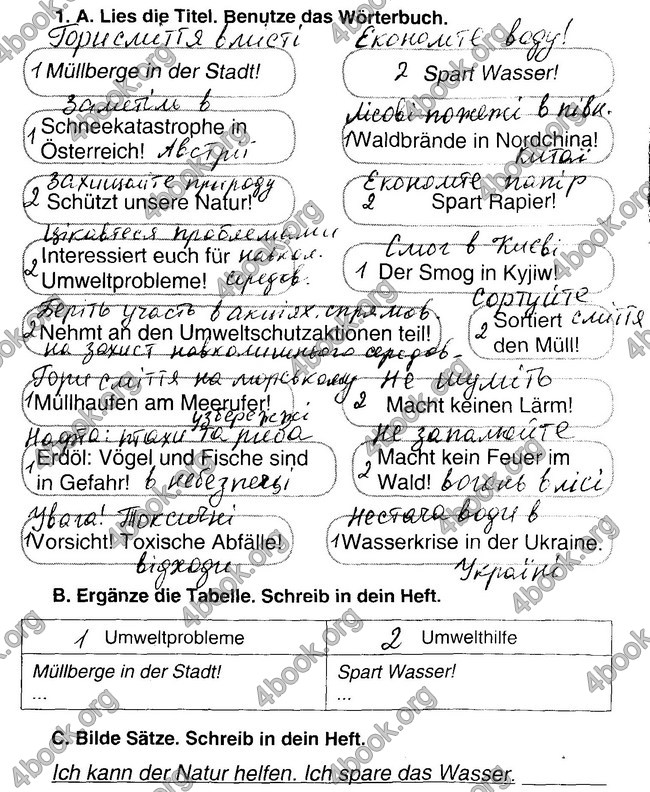 1. A. Lies die Titel. Benutze das Wörterbuch.
Гори сміття в місті
1 Müllberge in der Stadt!
Економте воду!
2 Spart Wasser!
Заметіль в
1 Schneekatastrophe in
Österreich! Австрії
Лісові пожежі в півн.
1 Waldbrände in Nordchina!
Китаї
Захищайте природу
2 Schützt unsere Natur!
Економте папір
2 Spart Rapier!
Цікавтеся проблемами
2 Interessiert euch für навкол.
Umweltprobleme! середов.
Смог в Києві
1 Der Smog in Kyjiw!
Беріть участь в акціях, спрямов.
2 Nehmt an den Umweltschutzaktionen teil!
на захист навколишнього середов.
Сортуйте
2 Sortiert сміття
den Müll!
Гори сміття на морському
1 Müllhaufen am Meerufer!
узбережжі
Не шуміть
2 Macht keinen Lärm!
Нафта: птахи та риба
1 Erdöl: Vögel und Fische sind
in Gefahr! в небезпеці
Не запалюйте
2 Macht kein Feuer im
Wald! вогонь в лісі
Увага! Токсичні
1 Vorsicht! Toxische Abfälle!
відходи
Нестача води в
1 Wasserkrise in der Ukraine.
Україні
B. Ergänze die Tabelle. Schreib in dein Heft.
1 Umweltprobleme
2 Umwelthilfe
Müllberge in der Stadt!
...
Spart Wasser!
...
C. Bilde Sätze. Schreib in dein Heft.
Ich kann der Natur helfen. Ich spare das Wasser.
4book.org